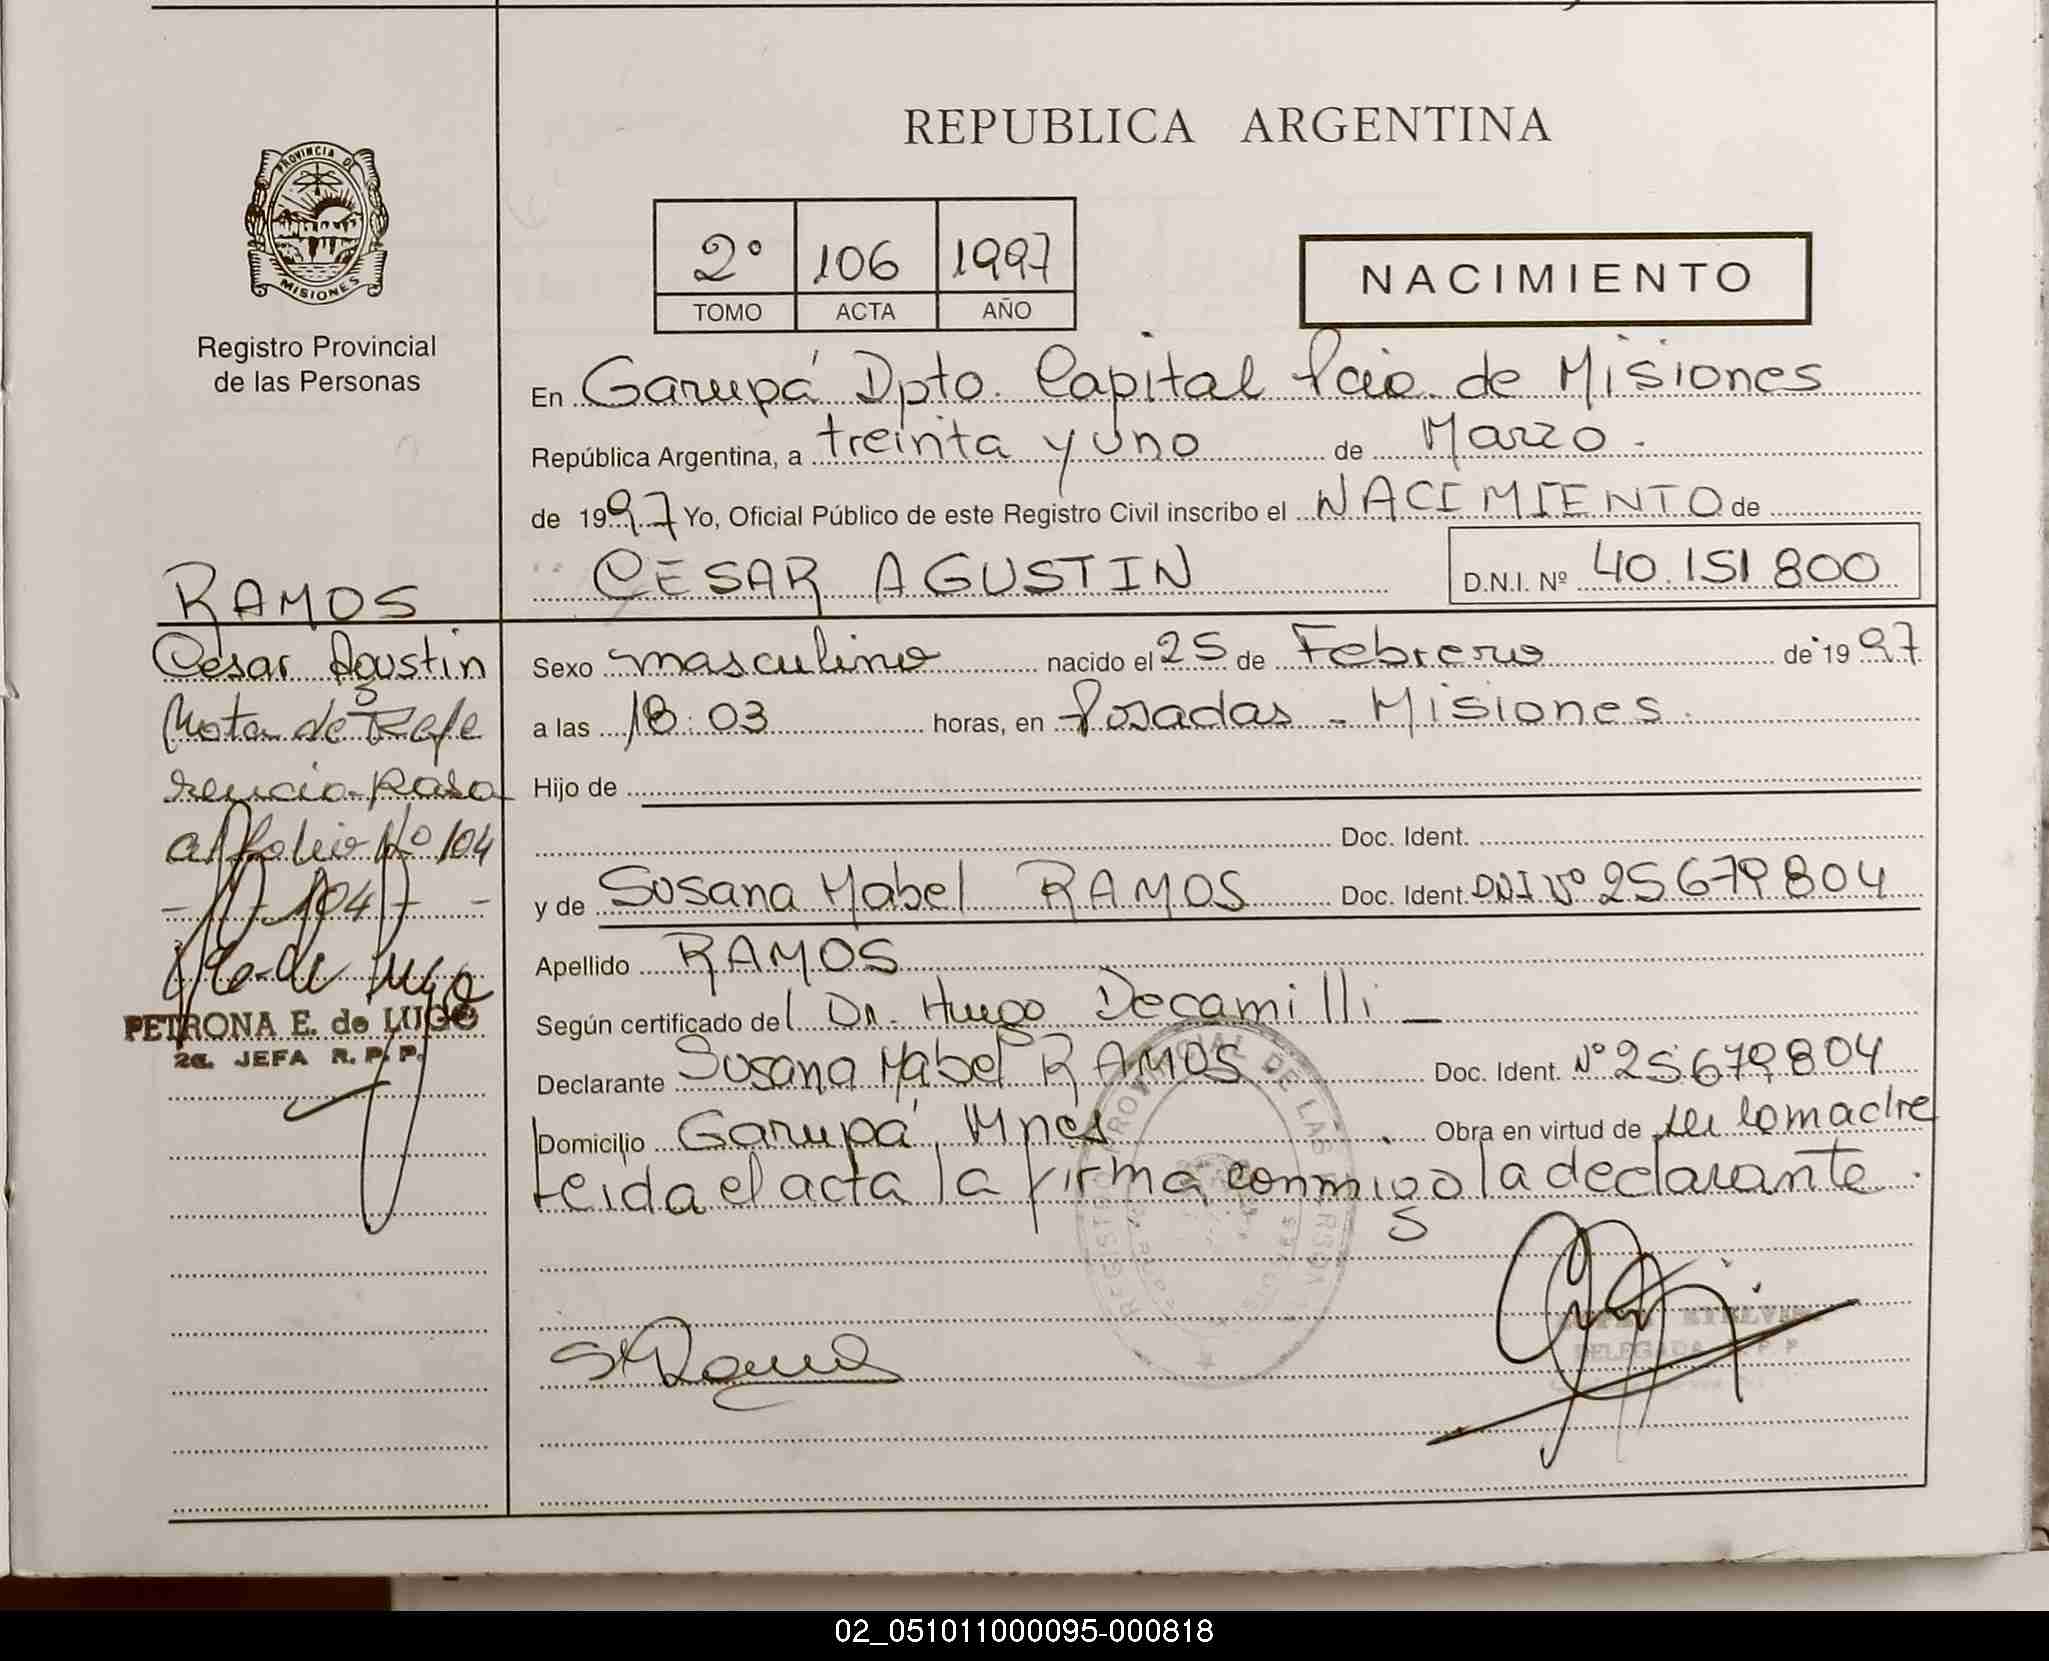 REPUBLICA ARGENTINA
PROVINCIA DE
MISIONES
Registro Provincial
de las Personas
2° 106 1997
TOMO ACTA AÑO
NACIMIENTO
En Garupá Dpto. Capital Pcia. de Misiones
República Argentina, a treinta y uno de Marzo.
de 1997 Yo, Oficial Público de este Registro Civil inscribo el NACIMIENTO de
CESAR AGUSTIN D.N.I. Nº 40.151.800
Sexo masculino nacido el 25 de Febrero de 1997
a las 18:03 horas, en Posadas - Misiones.
Hijo de
Doc. Ident.
y de Susana Mabel RAMOS Doc. Ident. DNI Nº 25679804
Apellido RAMOS
Según certificado del Dr. Hugo Decamilli -
Declarante Susana Mabel RAMOS Doc. Ident. Nº 25679804
Domicilio Garupá, Mnes. Obra en virtud de ser la madre
leida el acta la firma conmigo la declarante.
RAMOS
Cesar Agustin
Nota de Refe
rencia Pasa
al folio Nº 104
- 104 -
PETRONA E. de LUGO
2a. JEFA R. P. P.
REGISTRO PROVINCIAL DE LAS PERSONAS
S Ramos
ETELVINA
DELEGADA R P P
02_051011000095-000818